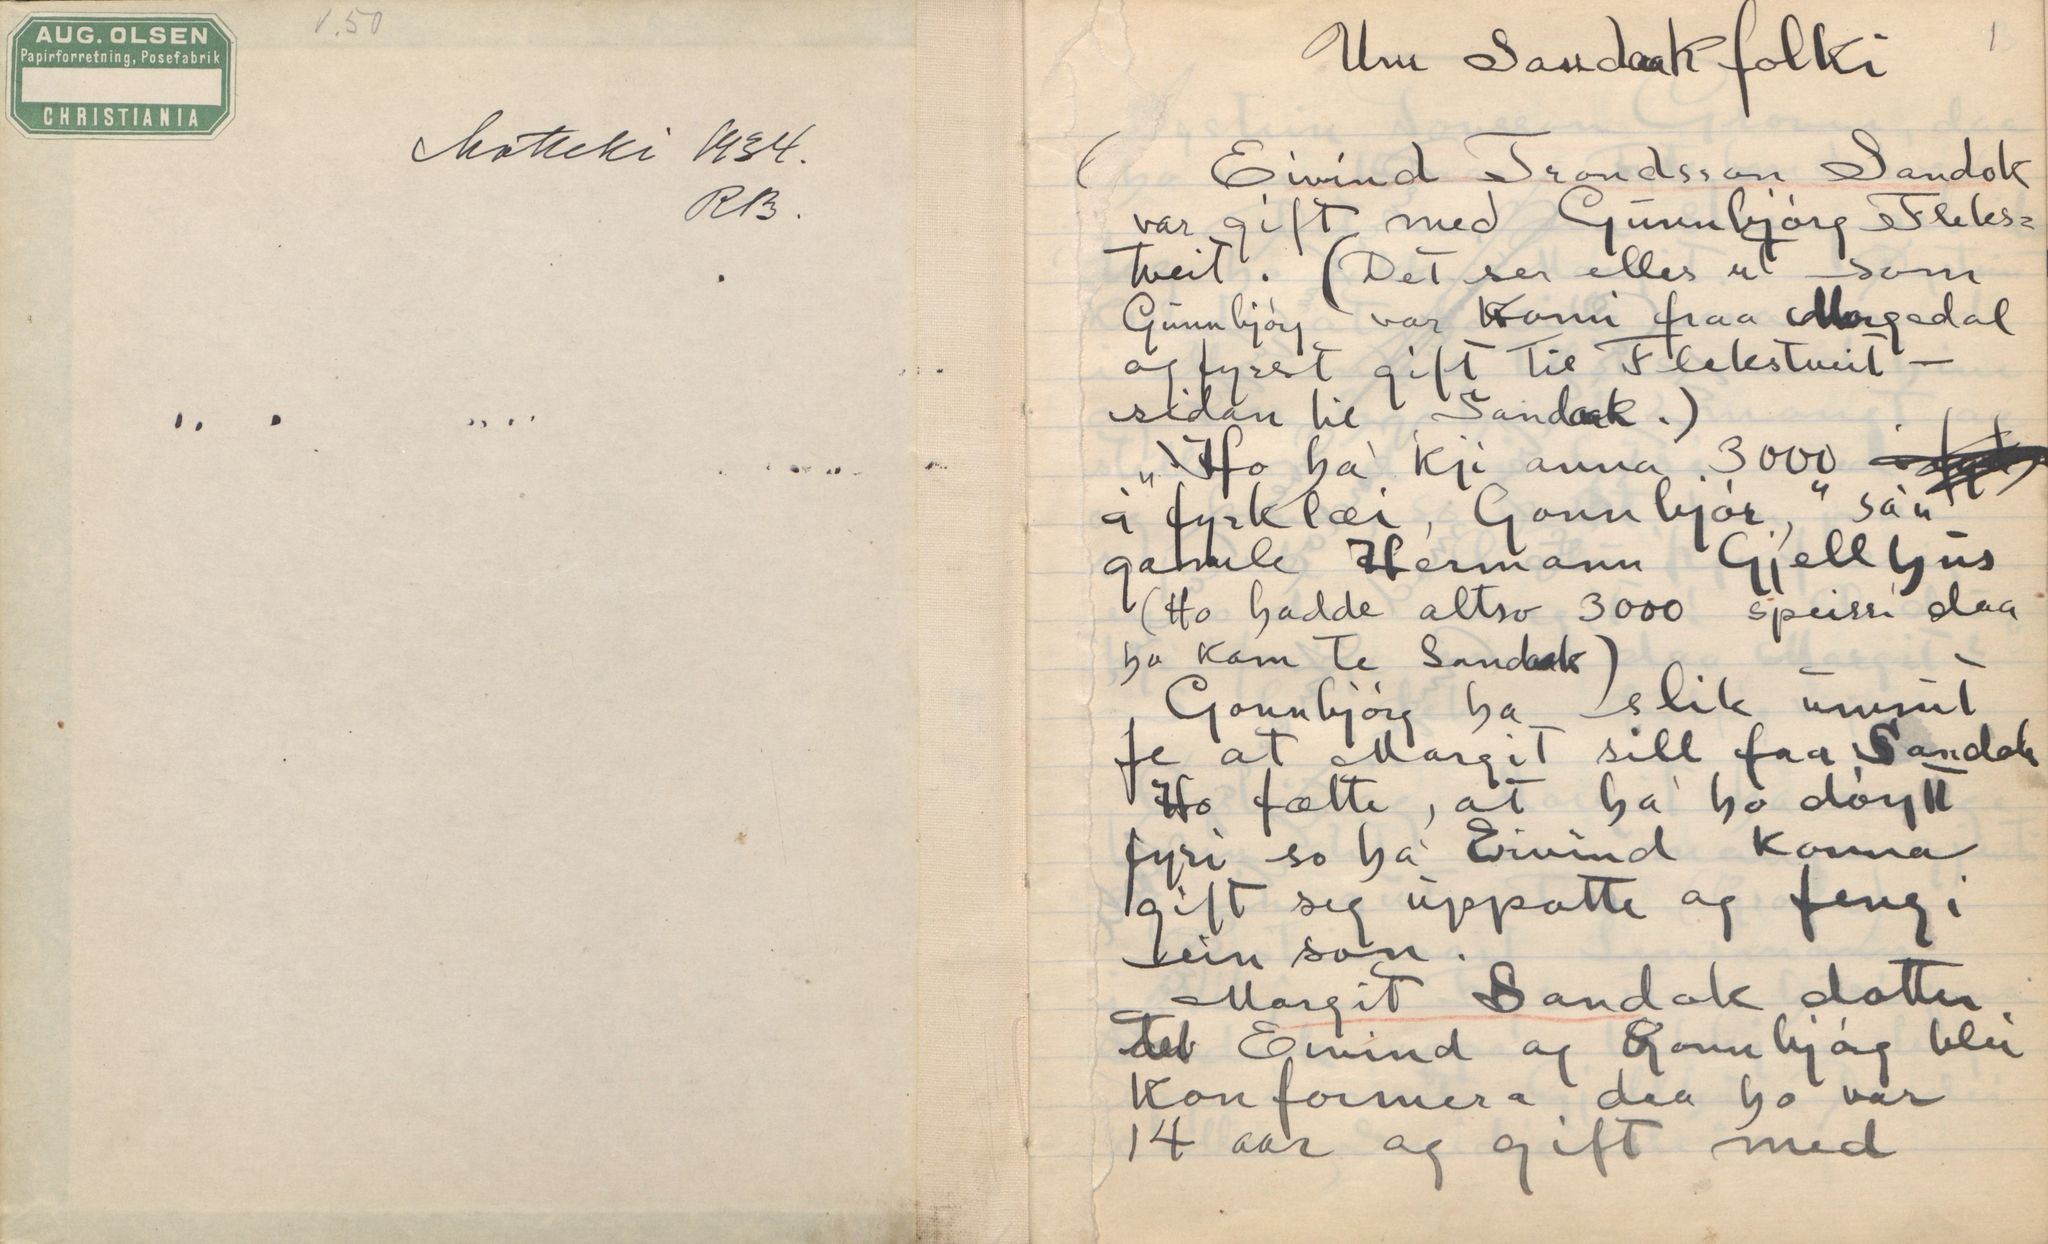 AUG. OLSEN
Papirforretning, Posefabrik
CHRISTIANIA
1.50
Motteki 1934.
RB.
1
Um Sandaakfolki
( Eivind Trondsson Sandok
var gift med Gunnbjórg Fleks=
tveit. (Det ser elles ut som
Gunnbjórg var komi fraa Morgedal
og fyrst gift til Flekstveit –
sidan til Sandaak.)
"Ho ha' kji anna 3000
i fyrklæi, Gonnbjór," sa'n
gamle Hermann Gjellhus
(Ho hadde altso 3000 speissi daa
ho kom te Sandaak)
Gonnbjórg ha slik ummut
fe at Margit sill faa Sandok
Ho fætte, at ha' ho dóytt
fyri so ha' Eivind konna
gift seg uppatte og fengi
ein son.
Margit Sandok dotter
Eivind og Gonnbjórg blei
konformera daa ho var
14 aar og gift med